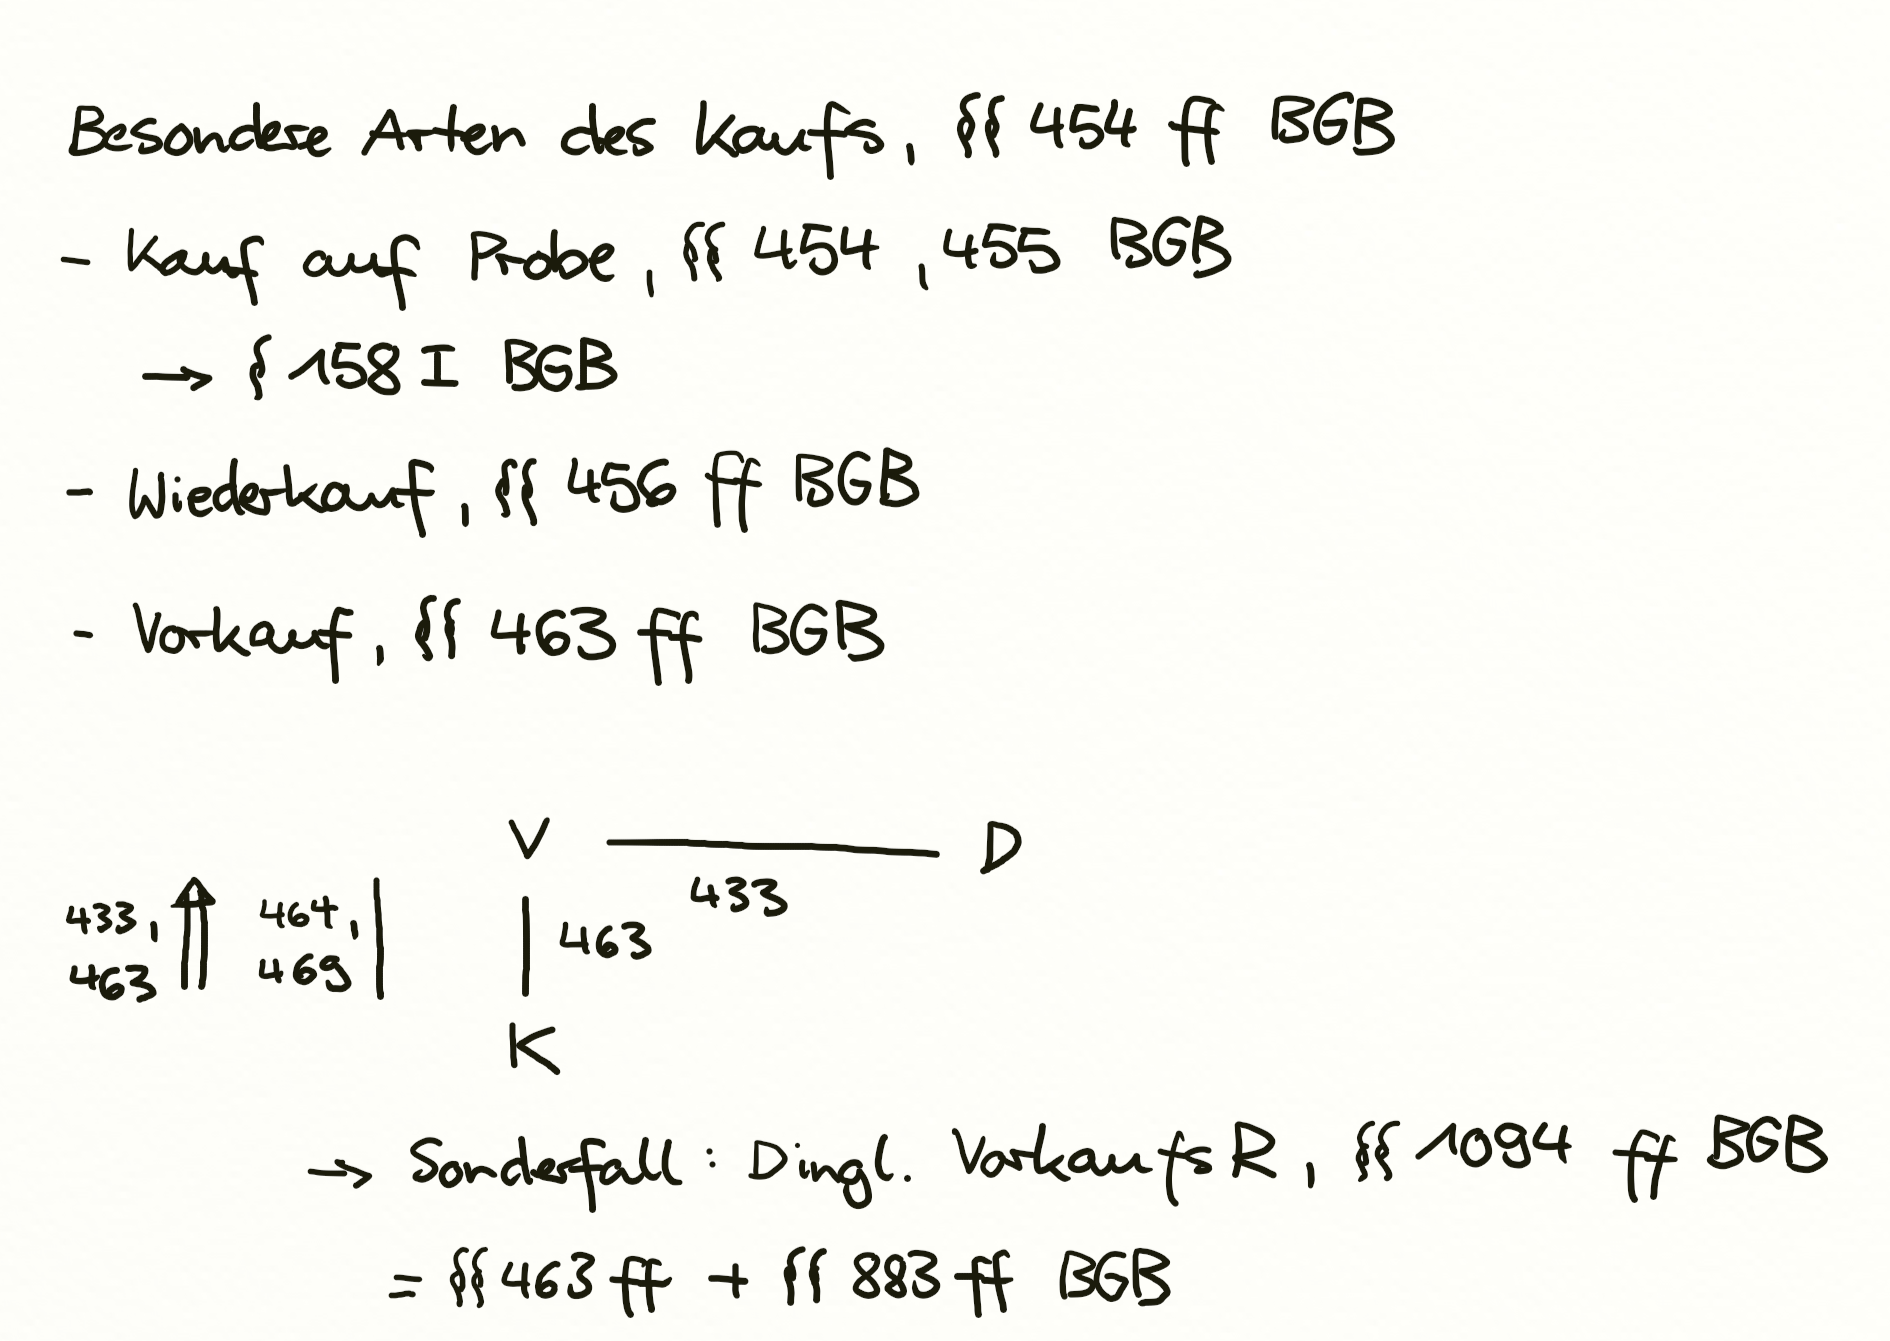 Besondere Arten des Kaufs, §§ 454 ff BGB
- Kauf auf Probe, §§ 454, 455 BGB
→ § 158 I BGB
- Wiederkauf, §§ 456 ff BGB
- Vorkauf, §§ 463 ff BGB
V D
433
433, 464,
463 469
463
K
→ Sonderfall: Dingl. VorkaufsR, §§ 1094 ff BGB
= §§ 463 ff + §§ 883 ff BGB